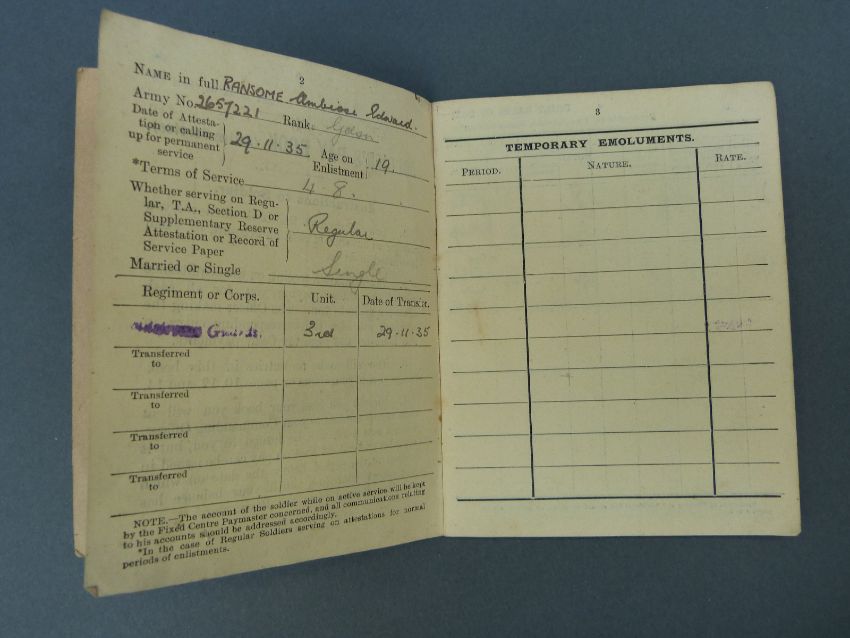 2
NAME in full RANSOME Ambrose Edward.
Army No. 2657221 Rank. Gdsn
Date of Attesta-
tion or calling
up for permanent
service
29·11·35
Age on
Enlistment
19.
*Terms of Service 4 - 8.
Whether serving on Regu-
lar, T.A., Section D or
Supplementary Reserve
Attestation or Record of
Service Paper
Regular
Married or Single Single
Regiment or Corps. Unit. Date of Transfer.
Guards. 3rd 29·11·35
Transferred
to
Transferred
to
Transferred
to
Transferred
to
NOTE.—The account of the soldier while on active service will be kept
by the Fixed Centre Paymaster concerned, and all communications relating
to his accounts should be addressed accordingly.
*In the case of Regular Soldiers serving on attestations for normal
periods of enlistments.
3
TEMPORARY EMOLUMENTS.
PERIOD. NATURE. RATE.